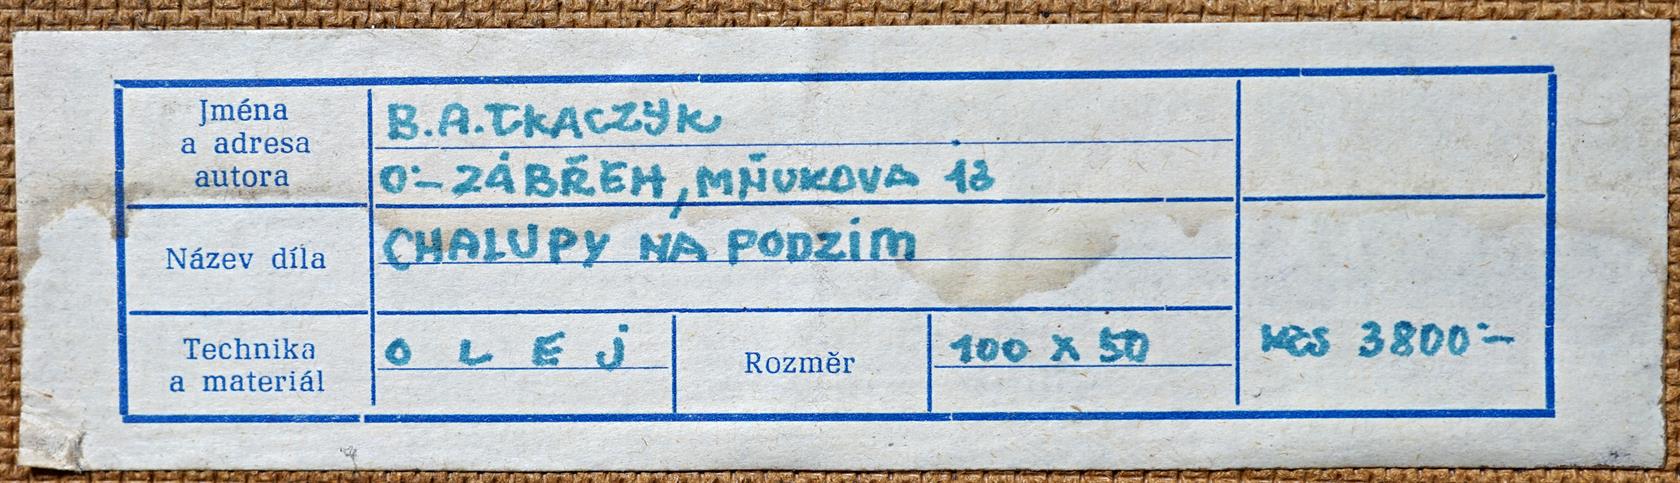 Jména
a adresa
autora
B.A.TKACZYK
O-ZÁBŘEH, MŇUKOVA 13
Název díla
CHALUPY NA PODZIM
Technika
a materiál
OLEJ
Rozměr
100 x 50
Kčs 3800:-